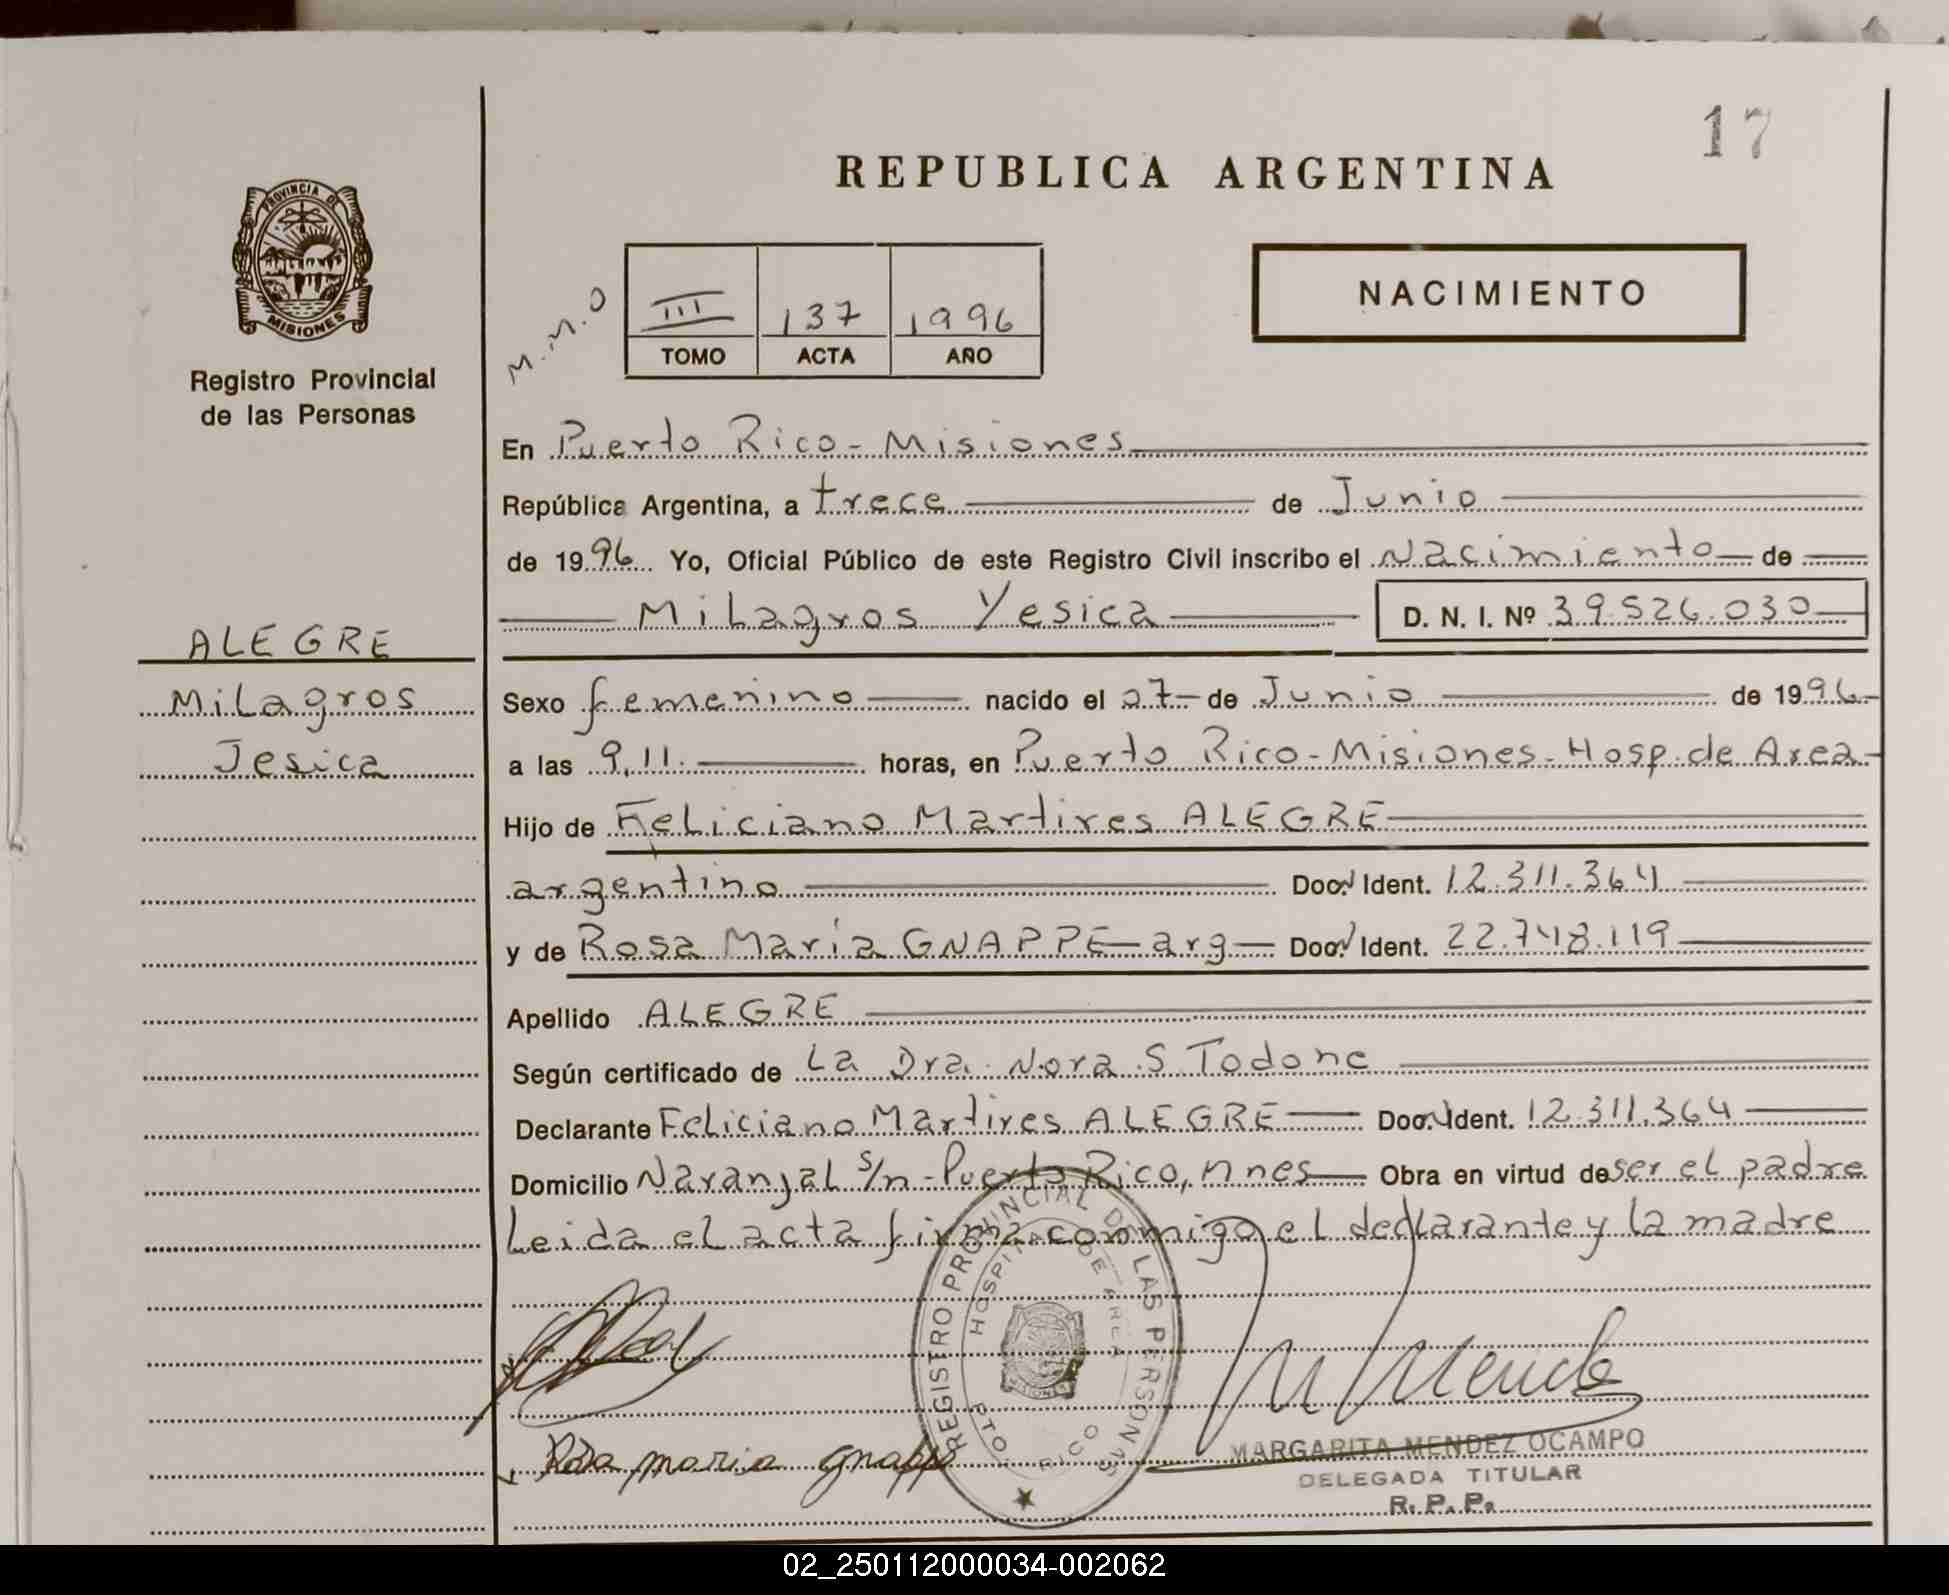 17
REPUBLICA ARGENTINA
PROVINCIA DE
MISIONES
Registro Provincial
de las Personas
M.M.O
III 137 1996
TOMO ACTA AÑO
NACIMIENTO
En Puerto Rico - Misiones
República Argentina, a trece de Junio
de 1996 Yo, Oficial Público de este Registro Civil inscribo el Nacimiento de
Milagros Yesica D. N. I. Nº 39.526.030
ALEGRE
Milagros
Jesica
Sexo femenino nacido el 07 de Junio de 1996
a las 9,11. horas, en Puerto Rico - Misiones - Hosp. de Area
Hijo de Feliciano Martires ALEGRE
argentino Doc. Ident. 12.311.364
y de Rosa María GNAPPE - arg Doc. Ident. 22.748.119
Apellido ALEGRE
Según certificado de La Dra. Nora S. Todone
Declarante Feliciano Martires ALEGRE Doc. Ident. 12.311.364
Domicilio Naranjal s/n - Puerto Rico, Mnes Obra en virtud de ser el padre
Leida el acta firma conmigo el declarante y la madre
REGISTRO PROVINCIAL DE LAS PERSONAS
HOSPITAL DE AREA
PTO. RICO
MISIONES
M Mende
Rosa maria gnappe
MARGARITA MENDEZ OCAMPO
DELEGADA TITULAR
R. P. P.
02_250112000034-002062